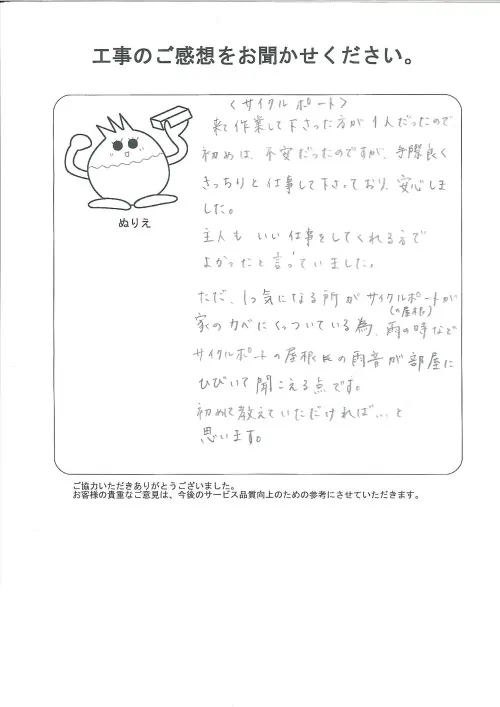 工事のご感想をお聞かせください。
〈サイクルポート〉
来て作業して下さった方が1人だったので
初めは、不安だったのですが、手際良く
きっちりと仕事して下さっており、安心しま
した。
主人もいい仕事をしてくれる方で
よかったと言っていました。
ただ、1つ気になる所がサイクルポートが
(の屋根)
家のカベにくっついている為、雨の時など
サイクルポートの屋根の雨音が部屋に
ひびいて聞こえる点です。
初めて教えていただければ…と
思います。
ぬりえ
ご協力いただきありがとうございました。
お客様の貴重なご意見は、今後のサービス品質向上のための参考にさせていただきます。